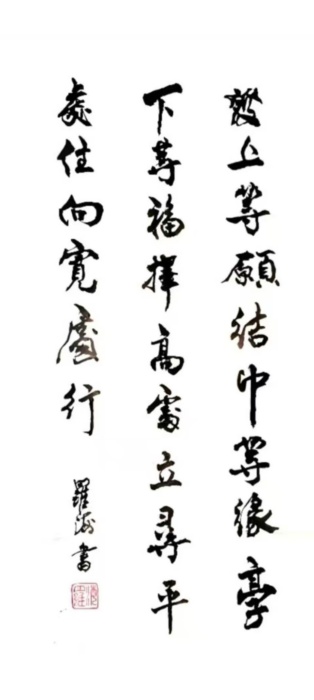 發上等願結中等緣享
下等福擇高處立尋平
處住向寬處行
羅海書